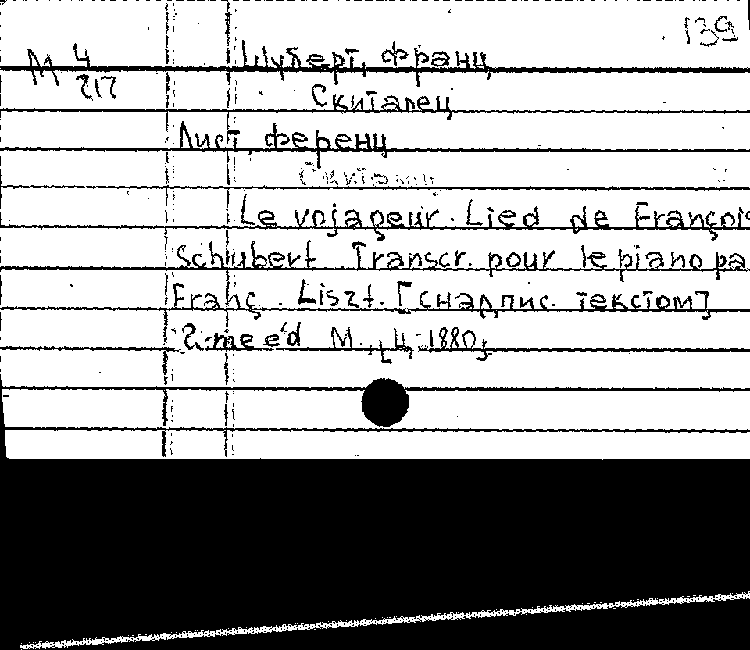 139
М 4/217
Шуберт, Франц
Скиталец
Лист, Ференц
Скиталец
Le vojageur. Lied de François
Schubert. Transcr. pour le piano pa
Franç. Liszt. [снадпис. текстом]
2-me éd М.,